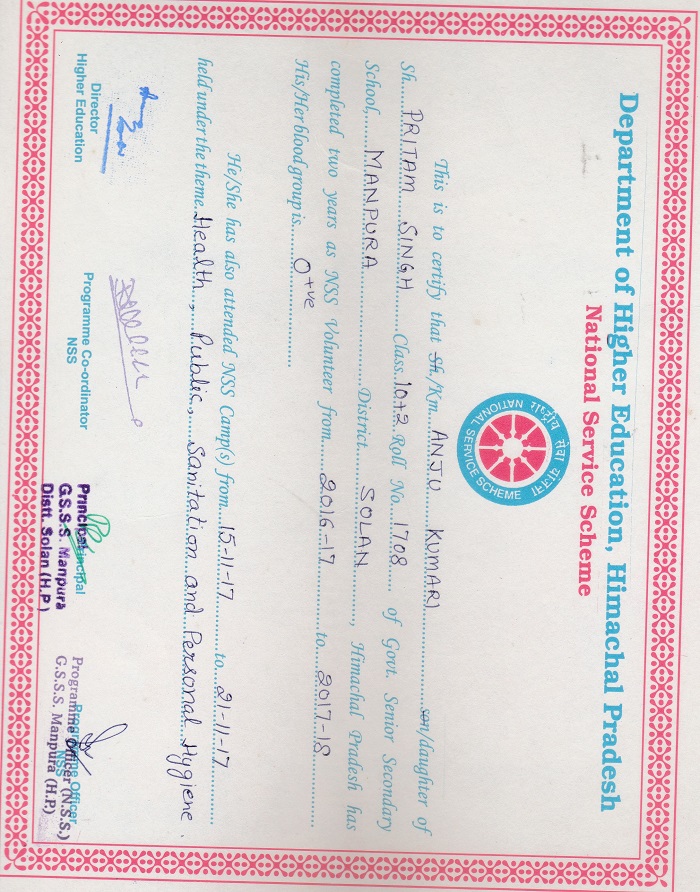 Department of Higher Education, Himachal Pradesh
National Service Scheme
राष्ट्रीय सेवा योजना
NATIONAL SERVICE SCHEME
This is to certify that Sh./Km. ANJU KUMARI son/daughter of
Sh. PRITAM SINGH Class 10+2 Roll No. 1708 of Govt. Senior Secondary
School, MANPURA District SOLAN, Himachal Pradesh has
completed two years as NSS Volunteer from 2016-17 to 2017-18
His/Her blood group is O+ve
He/She has also attended NSS Camp(s) from 15-11-17 to 21-11-17
held under the theme Health, Public, Sanitation and Personal Hygiene.
Director
Higher Education
Programme Co-ordinator
NSS
Principal
Principal
G.S.S.S. Manpura
Distt. Solan (H.P.)
Programme Officer
NSS
Programme Officer (N.S.S.)
G.S.S.S. Manpura (H.P.)